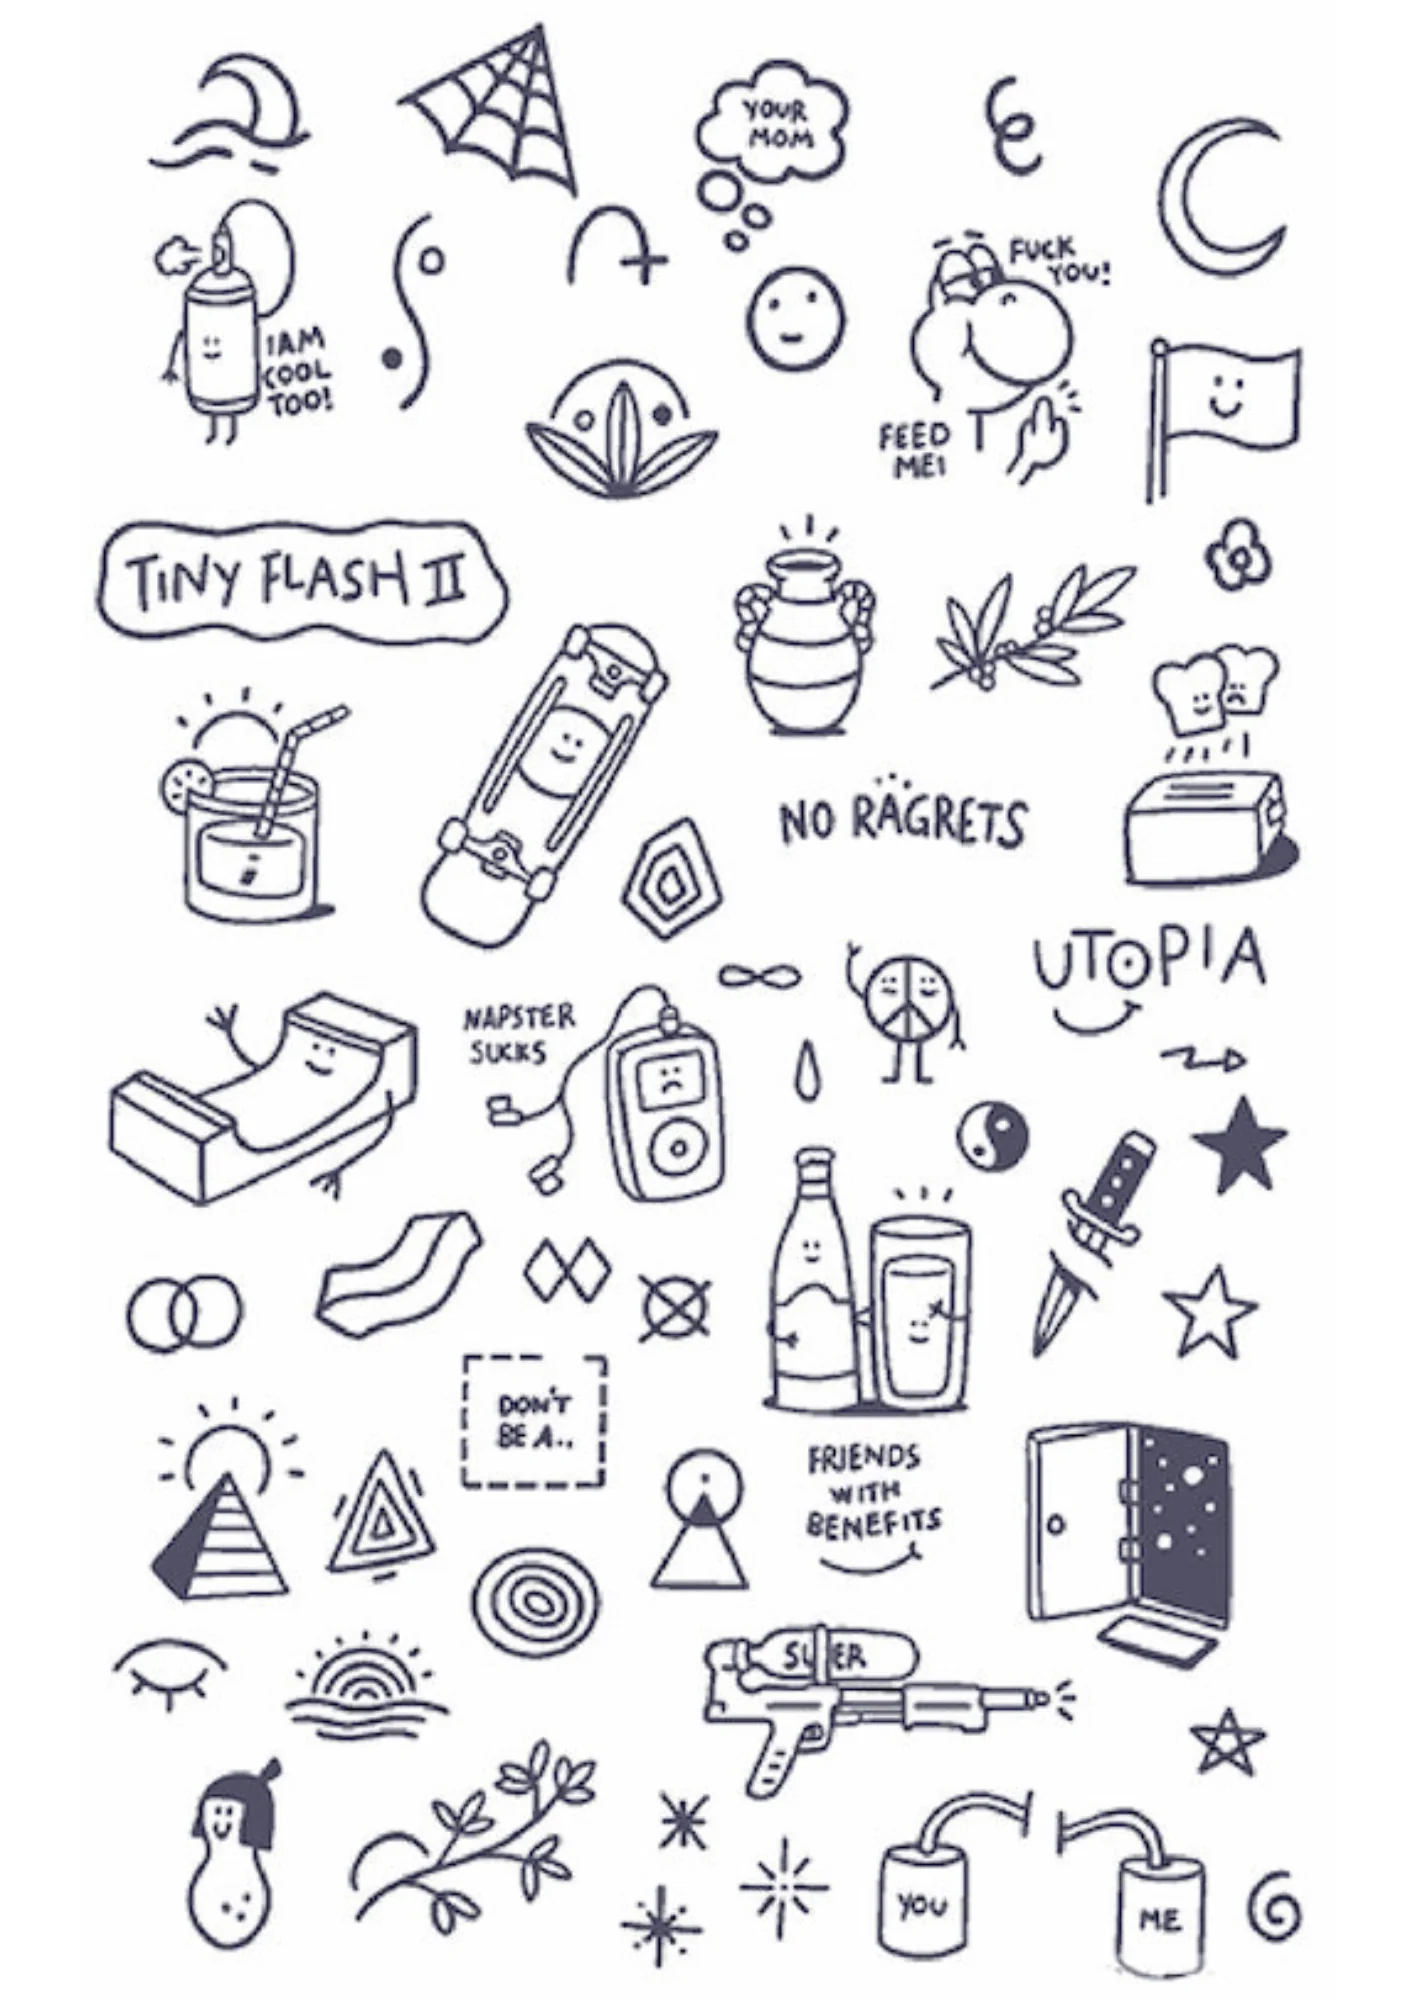 YOUR
MOM
FUCK
YOU!
I AM
COOL
TOO!
FEED
ME!
TiNY FLASH II
NO RAGRETS
UTOPIA
NAPSTER
SUCKS
DON'T
BE A..
FRIENDS
WITH
BENEFITS
SU ER
YOU
ME